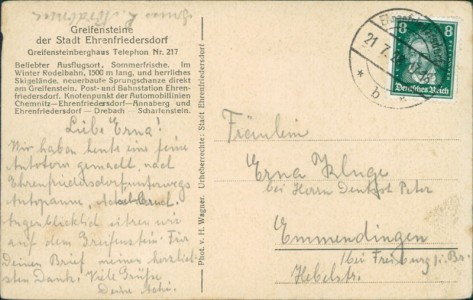 Greifensteine
der Stadt Ehrenfriedersdorf
Greifensteinberghaus Telephon Nr. 217
Beliebter Ausflugsort, Sommerfrische. Im
Winter Rodelbahn, 1500 m lang, und herrliches
Skigelände, neuerbaute Sprungschanze direkt
am Greifenstein. Post- und Bahnstation Ehren-
friedersdorf. Knotenpunkt der Automobillinien
Chemnitz—Ehrenfriedersdorf—Annaberg und
Ehrenfriedersdorf — Drebach — Scharfenstein.
Liebe Erna!
Wir haben heute eine feine
Autotour gemacht, nach
Ehrenfriedersdorf unterwegs
Autopanne,
Augenblicklich sitzen wir
auf dem Greifenstein. Für
Deinen Brief meinen herzlich-
sten Dank. Viele Grüße
Deine
Phot. v. H. Wagner. Urheberrechte: Stadt Ehrenfriedersdorf
21.7.
* b *
8 8
Deutsches Reich
Fräulein
Erna Kluge
bei Herrn Peter
Emmendingen
bei Freiburg i. Br.
Hebelstr.